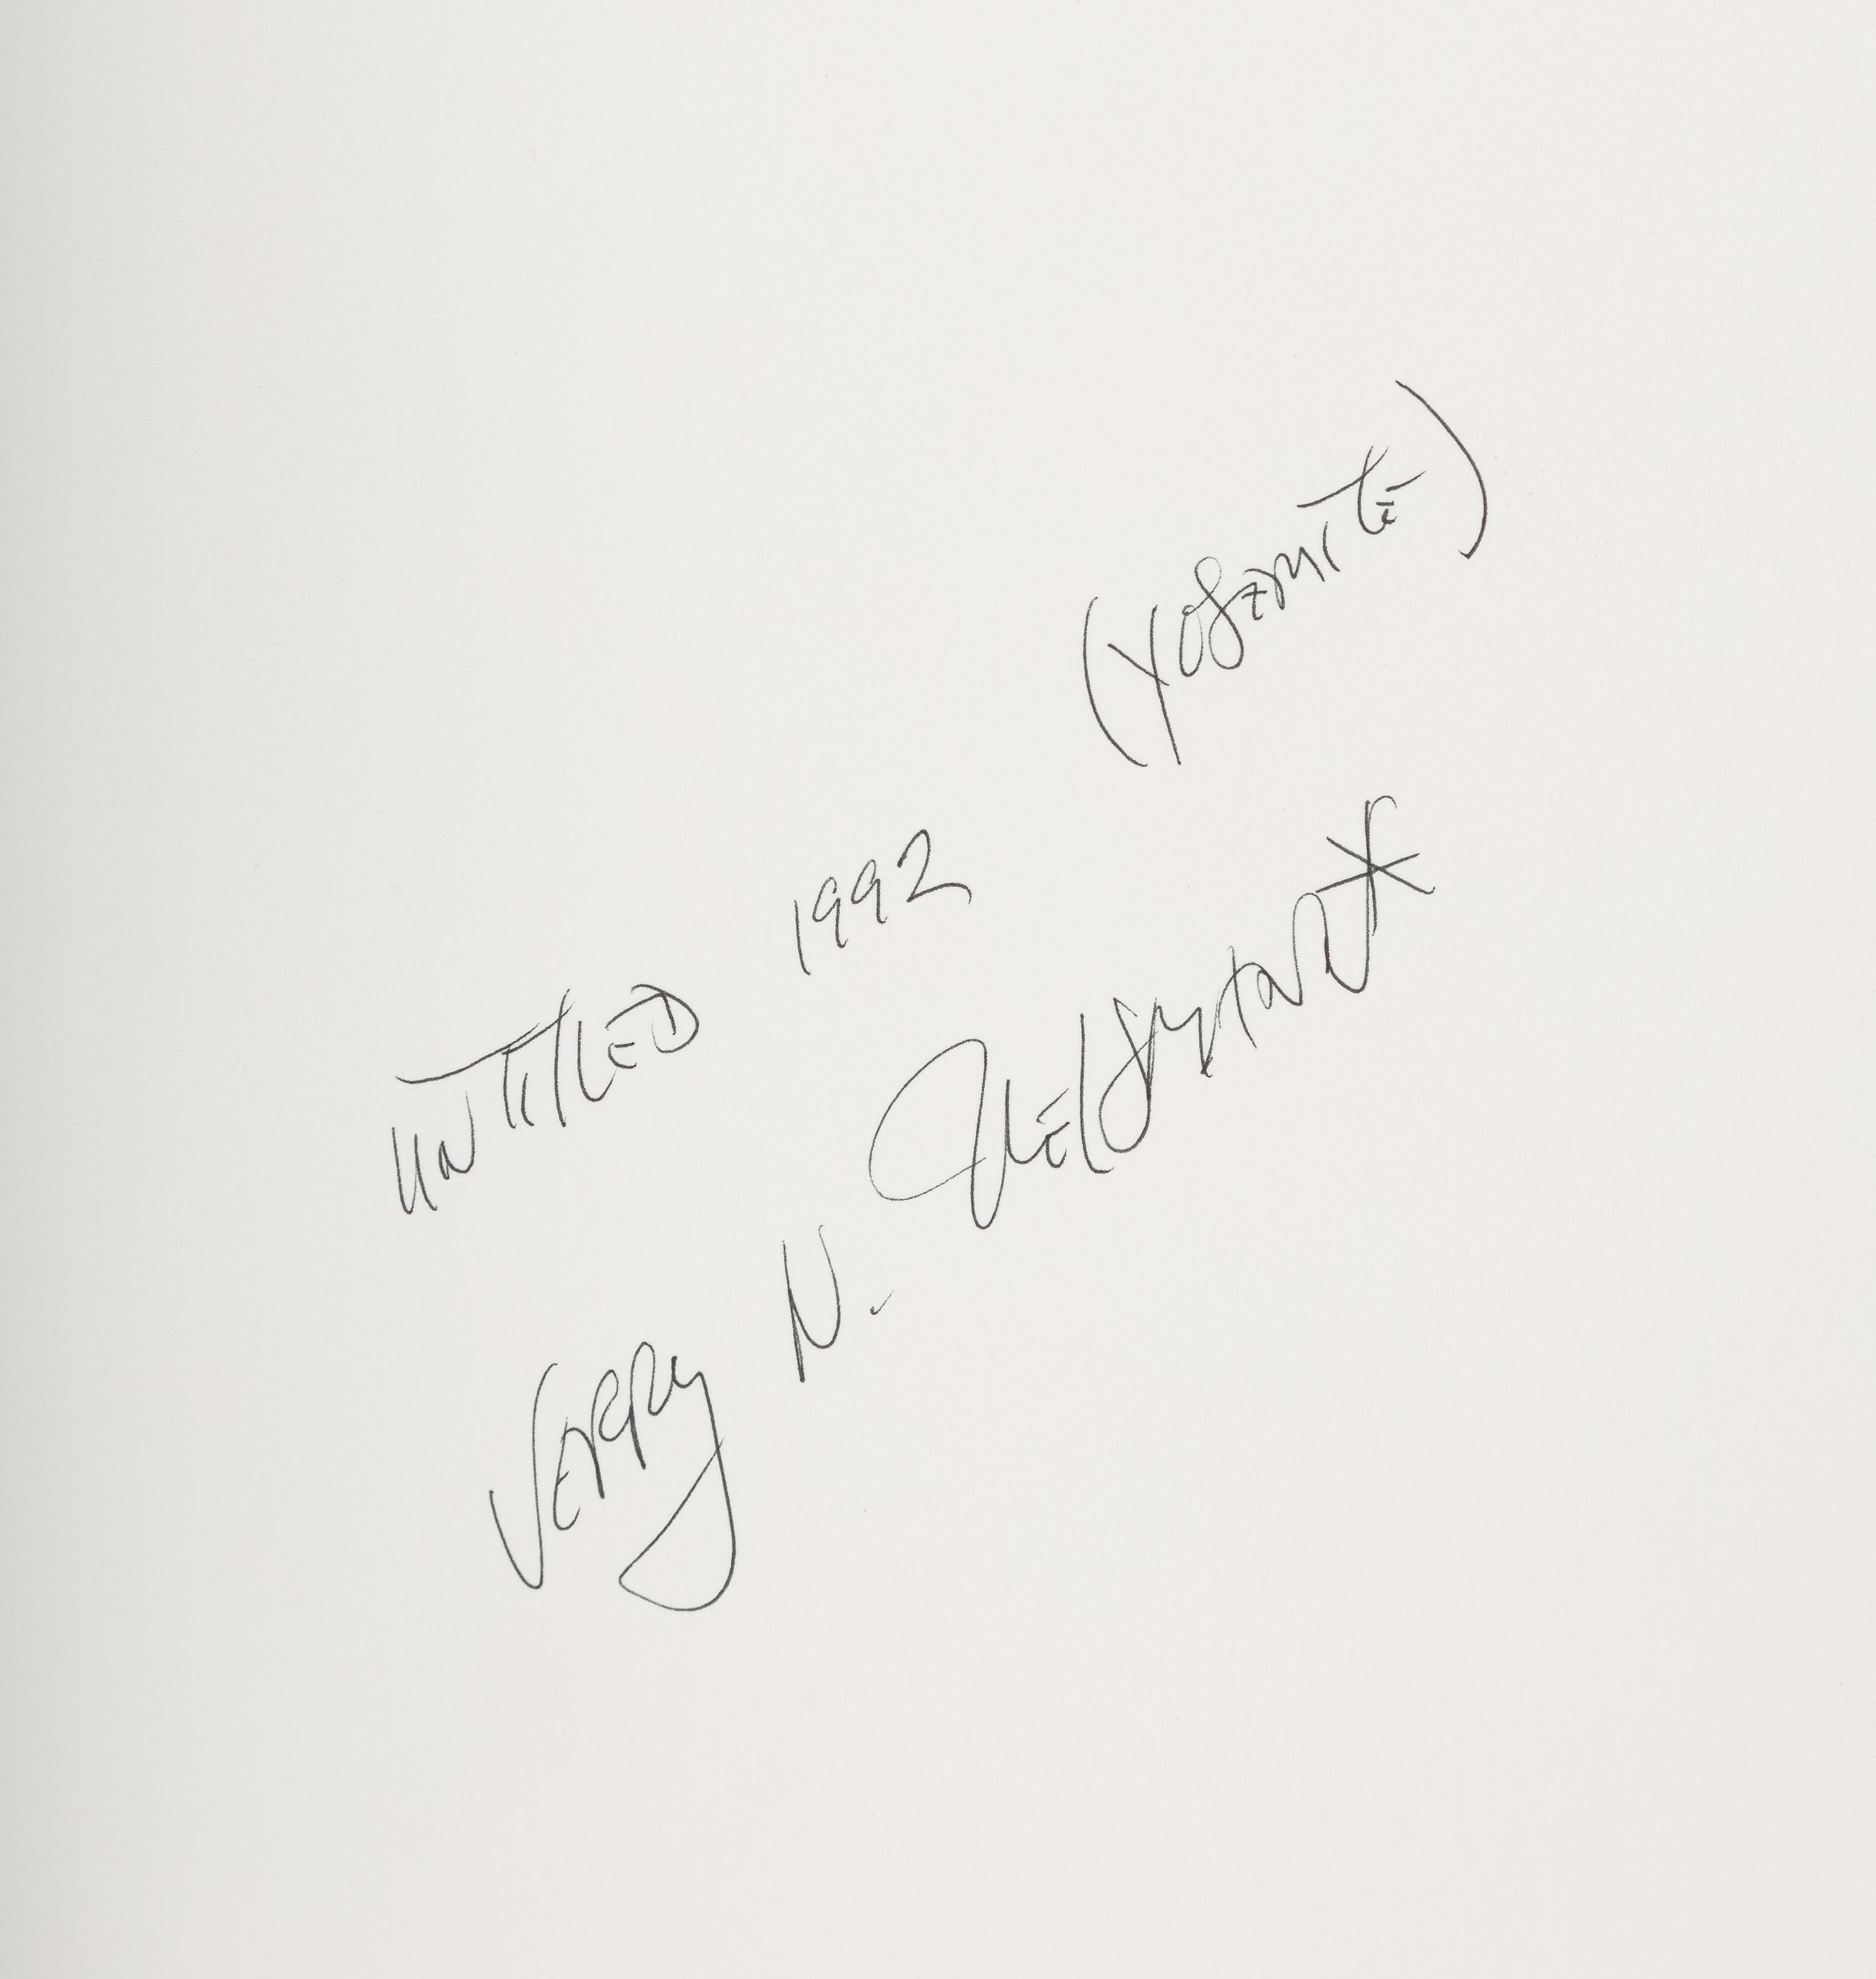 UNTITLED 1992 (YOSEMITE)
JERRY N. UELSMANN